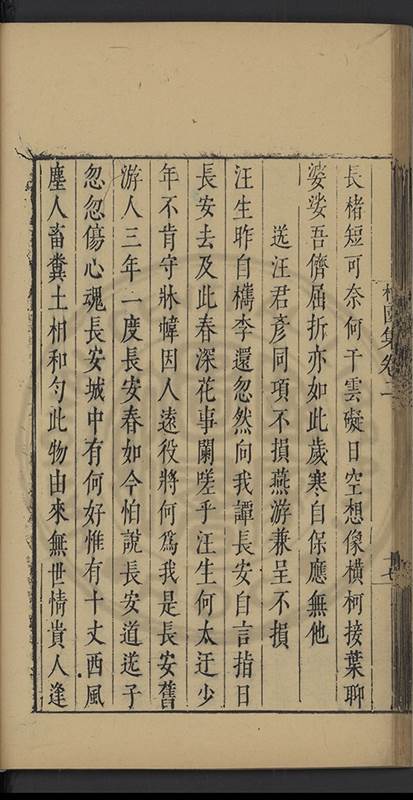 長楮短可奈何干雲礙日空想像橫柯接葉聊
婆娑吾儕屈折亦如此歲寒自保應無他
送汪君彥同項不損燕游兼呈不損
汪生昨自檇李還忽然向我譚長安自言指日
長安去及此春深花事闌嗟乎汪生何太迂少
年不肯守牀幃因人遠役將何爲我是長安舊
游人三年一度長安春如今怕說長安道送子
忽忽傷心魂長安城中有何好惟有十丈西風
塵人畜糞土相和勻此物由來無世情貴人逢
集卷二